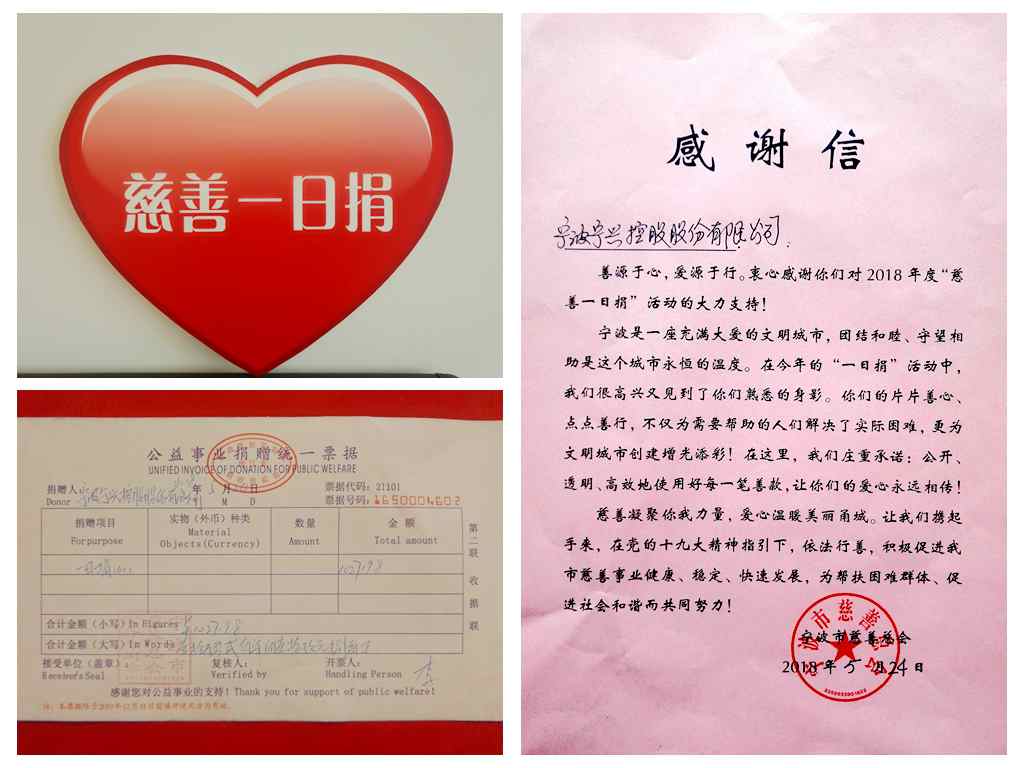 慈善一日捐
公益事业捐赠统一票据
UNIFIED INVOICE OF DONATION FOR PUBLIC WELFARE
捐赠人 宁波宁兴控股股份有限公司 年 5 月 日 票据代码：27101
Donor Y M D 票据号码：1650004602
捐赠项目 实物（外币）种类 数量 金 额
For purpose Material Objects(Currency) Amount Total amount
一日捐
第二联 收据联
合计金额（小写）In Figures
合计金额（大写）In Words
接受单位（盖章）： 复核人： 开票人：
Receiver's Seal Verified by Handling Person 李
感谢您对公益事业的支持！Thank you for support of public welfare!
感谢信
宁波宁兴控股股份有限公司：
善源于心，爱源于行。衷心感谢你们对 2018 年度“慈
善一日捐”活动的大力支持！
宁波是一座充满大爱的文明城市，团结和睦、守望相
助是这个城市永恒的温度。在今年的“一日捐”活动中，
我们很高兴又见到了你们熟悉的身影。你们的片片善心、
点点善行，不仅为需要帮助的人们解决了实际困难，更为
文明城市创建增光添彩！在这里，我们庄重承诺：公开、
透明、高效地使用好每一笔善款，让你们的爱心永远相传！
慈善凝聚你我力量，爱心温暖美丽甬城。让我们携起
手来，在党的十九大精神指引下，依法行善，积极促进我
市慈善事业健康、稳定、快速发展，为帮扶困难群体、促
进社会和谐而共同努力！
宁波市慈善总会
2018 年 5 月 24 日